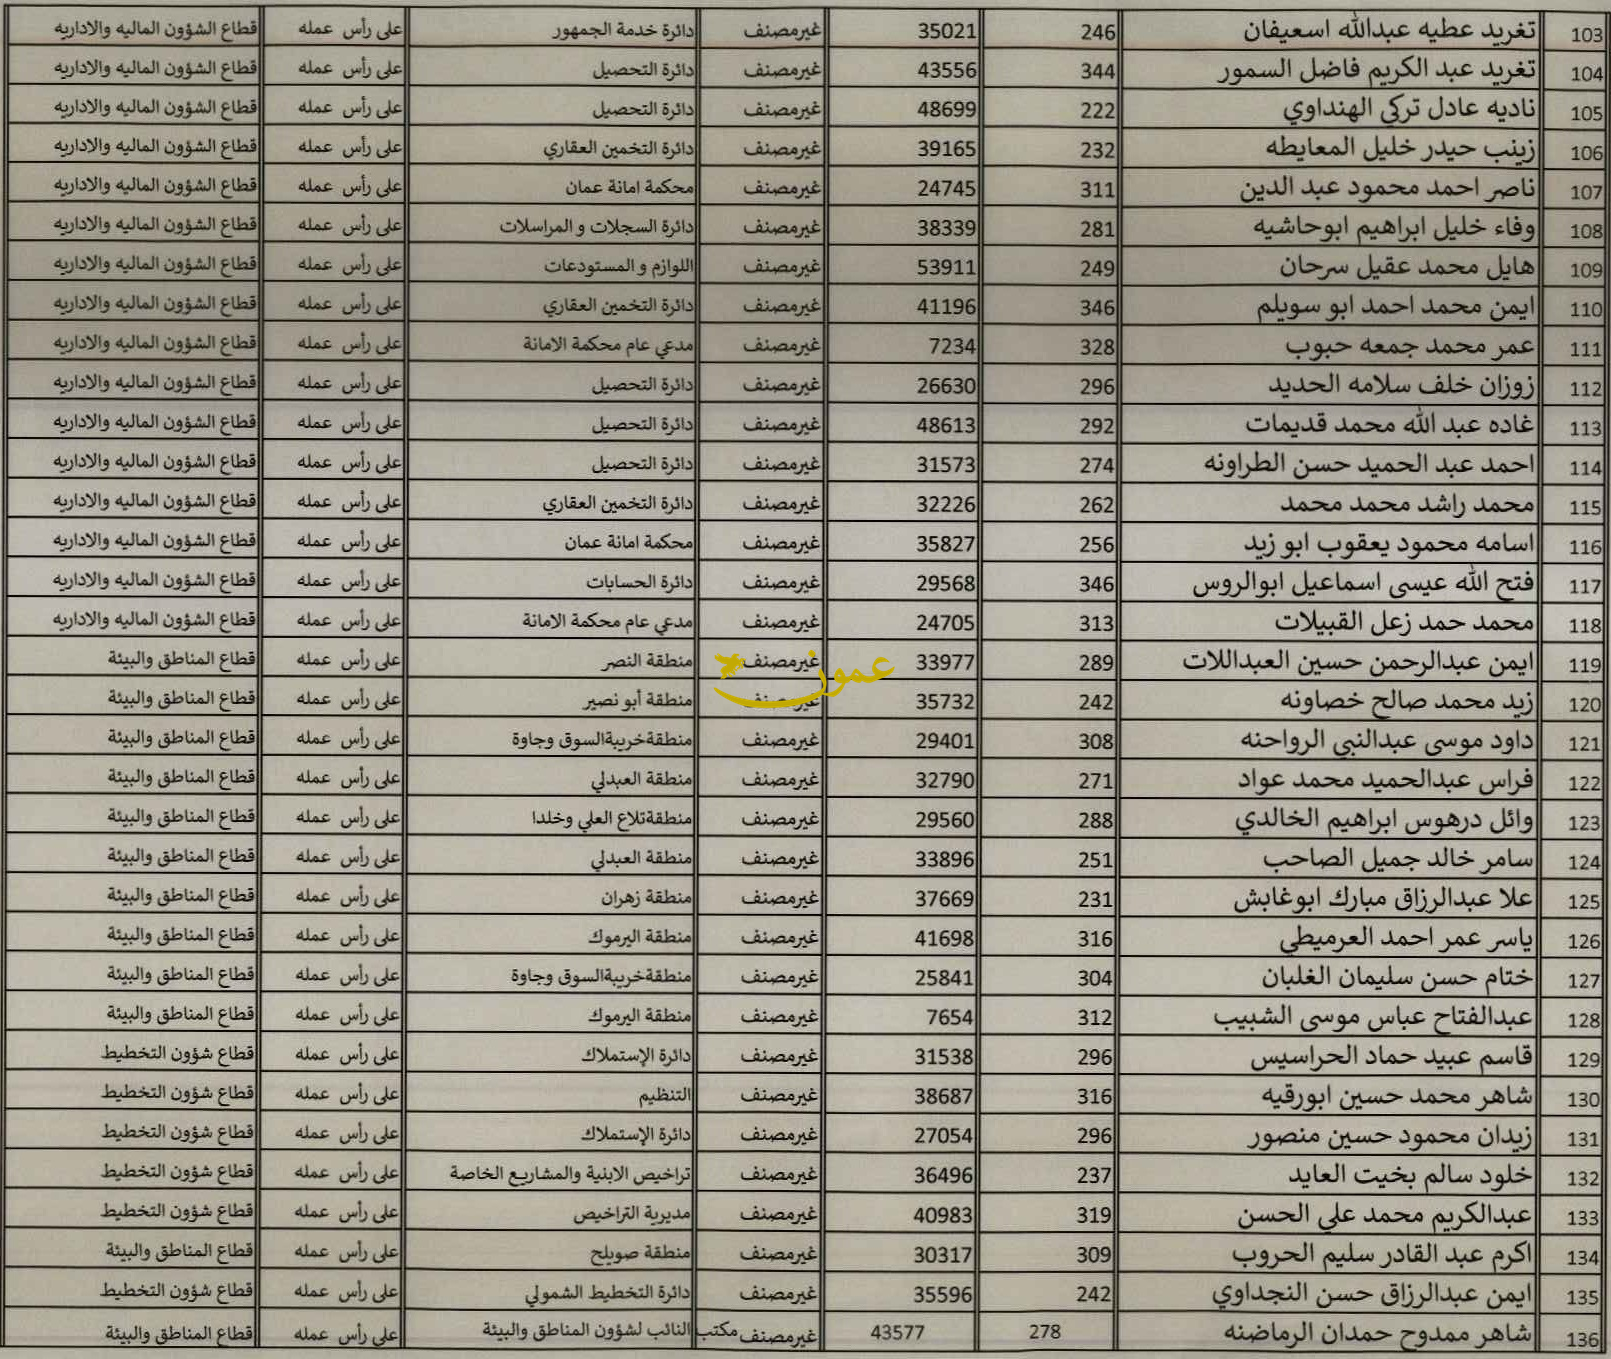 103 تغريد عطيه عبدالله اسعيفان 246 35021 غيرمصنف دائرة خدمة الجمهور على رأس عمله قطاع الشؤون الماليه والاداريه
104 تغريد عبد الكريم فاضل السمور 344 43556 غيرمصنف دائرة التحصيل على رأس عمله قطاع الشؤون الماليه والاداريه
105 ناديه عادل تركي الهنداوي 222 48699 غيرمصنف دائرة التحصيل على رأس عمله قطاع الشؤون الماليه والاداريه
106 زينب حيدر خليل المعايطه 232 39165 غيرمصنف دائرة التخمين العقاري على رأس عمله قطاع الشؤون الماليه والاداريه
107 ناصر احمد محمود عبد الدين 311 24745 غيرمصنف محكمة امانة عمان على رأس عمله قطاع الشؤون الماليه والاداريه
108 وفاء خليل ابراهيم ابوحاشيه 281 38339 غيرمصنف دائرة السجلات و المراسلات على رأس عمله قطاع الشؤون الماليه والاداريه
109 هايل محمد عقيل سرحان 249 53911 غيرمصنف اللوازم و المستودعات على رأس عمله قطاع الشؤون الماليه والاداريه
110 ايمن محمد احمد ابو سويلم 346 41196 غيرمصنف دائرة التخمين العقاري على رأس عمله قطاع الشؤون الماليه والاداريه
111 عمر محمد جمعه حبوب 328 7234 غيرمصنف مدعي عام محكمة الامانة على رأس عمله قطاع الشؤون الماليه والاداريه
112 زوزان خلف سلامه الحديد 296 26630 غيرمصنف دائرة التحصيل على رأس عمله قطاع الشؤون الماليه والاداريه
113 غاده عبد الله محمد قديمات 292 48613 غيرمصنف دائرة التحصيل على رأس عمله قطاع الشؤون الماليه والاداريه
114 احمد عبد الحميد حسن الطراونه 274 31573 غيرمصنف دائرة التحصيل على رأس عمله قطاع الشؤون الماليه والاداريه
115 محمد راشد محمد محمد 262 32226 غيرمصنف دائرة التخمين العقاري على رأس عمله قطاع الشؤون الماليه والاداريه
116 اسامه محمود يعقوب ابو زيد 256 35827 غيرمصنف محكمة امانة عمان على رأس عمله قطاع الشؤون الماليه والاداريه
117 فتح الله عيسى اسماعيل ابوالروس 346 29568 غيرمصنف دائرة الحسابات على رأس عمله قطاع الشؤون الماليه والاداريه
118 محمد حمد زعل القبيلات 313 24705 غيرمصنف مدعي عام محكمة الامانة على رأس عمله قطاع الشؤون الماليه والاداريه
119 ايمن عبدالرحمن حسين العبداللات 289 33977 غيرمصنف منطقة النصر على رأس عمله قطاع المناطق والبيئة
عمون
120 زيد محمد صالح خصاونه 242 35732 غيرمصنف منطقة أبو نصير على رأس عمله قطاع المناطق والبيئة
121 داود موسى عبدالنبي الرواحنه 308 29401 غيرمصنف منطقةخريبةالسوق وجاوة على رأس عمله قطاع المناطق والبيئة
122 فراس عبدالحميد محمد عواد 271 32790 غيرمصنف منطقة العبدلي على رأس عمله قطاع المناطق والبيئة
123 وائل درهوس ابراهيم الخالدي 288 29560 غيرمصنف منطقةتلاع العلي وخلدا على رأس عمله قطاع المناطق والبيئة
124 سامر خالد جميل الصاحب 251 33896 غيرمصنف منطقة العبدلي على رأس عمله قطاع المناطق والبيئة
125 علا عبدالرزاق مبارك ابوغابش 231 37669 غيرمصنف منطقة زهران على رأس عمله قطاع المناطق والبيئة
126 ياسر عمر احمد العرميطي 316 41698 غيرمصنف منطقة اليرموك على رأس عمله قطاع المناطق والبيئة
127 ختام حسن سليمان الغلبان 304 25841 غيرمصنف منطقةخريبةالسوق وجاوة على رأس عمله قطاع المناطق والبيئة
128 عبدالفتاح عباس موسى الشبيب 312 7654 غيرمصنف منطقة اليرموك على رأس عمله قطاع المناطق والبيئة
129 قاسم عبيد حماد الحراسيس 296 31538 غيرمصنف دائرة الإستملاك على رأس عمله قطاع شؤون التخطيط
130 شاهر محمد حسين ابورقيه 316 38687 غيرمصنف التنظيم على رأس عمله قطاع شؤون التخطيط
131 زيدان محمود حسين منصور 296 27054 غيرمصنف دائرة الإستملاك على رأس عمله قطاع شؤون التخطيط
132 خلود سالم بخيت العايد 237 36496 غيرمصنف تراخيص الابنية والمشاريع الخاصة على رأس عمله قطاع شؤون التخطيط
133 عبدالكريم محمد علي الحسن 319 40983 غيرمصنف مديرية التراخيص على رأس عمله قطاع شؤون التخطيط
134 اكرم عبد القادر سليم الحروب 309 30317 غيرمصنف منطقة صويلح على رأس عمله قطاع المناطق والبيئة
135 ايمن عبدالرزاق حسن النجداوي 242 35596 غيرمصنف دائرة التخطيط الشمولي على رأس عمله قطاع شؤون التخطيط
136 شاهر ممدوح حمدان الرماضنه 278 43577 غيرمصنف مكتب النائب لشؤون المناطق والبيئة على رأس عمله قطاع المناطق والبيئة